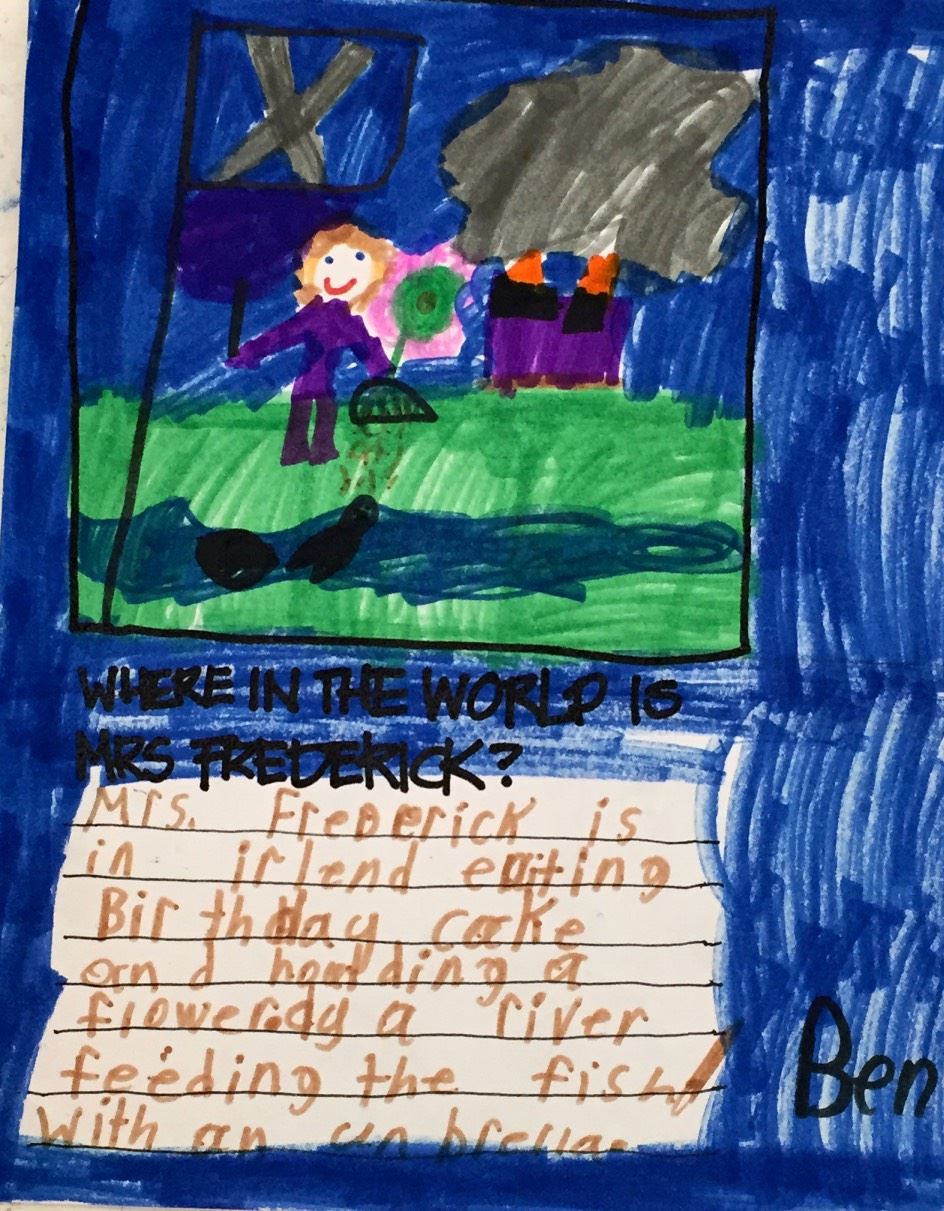 WHERE IN THE WORLD IS
MRS FREDERICK?
Mrs. Frederick is
in irlend eating
Birthday cake
and houlding a
flower. by a river
feeding the fish
with an unbrella
Ben